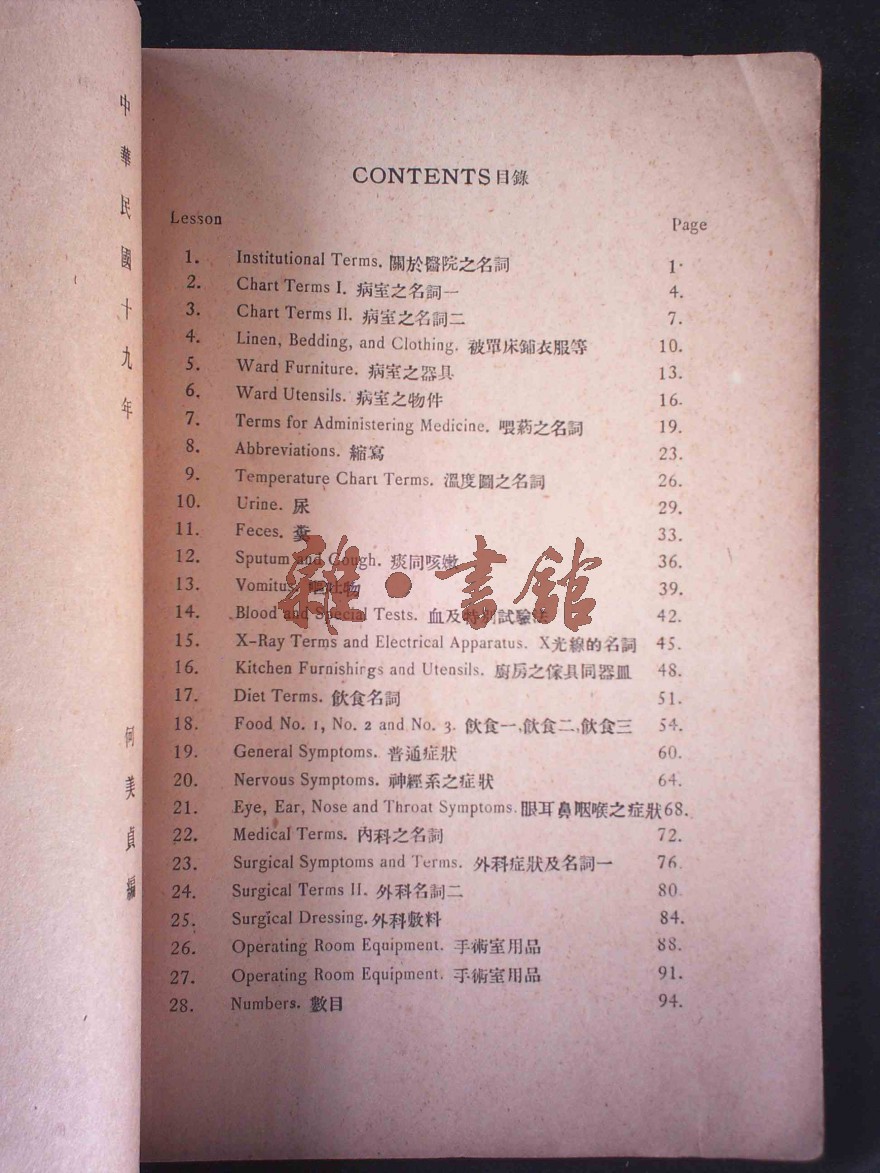 中華民國十九年
何美貞編
CONTENTS目錄
Lesson Page
1. Institutional Terms. 關於醫院之名詞 1.
2. Chart Terms I. 病室之名詞一 4.
3. Chart Terms II. 病室之名詞二 7.
4. Linen, Bedding, and Clothing. 被單床鋪衣服等 10.
5. Ward Furniture. 病室之器具 13.
6. Ward Utensils. 病室之物件 16.
7. Terms for Administering Medicine. 喂葯之名詞 19.
8. Abbreviations. 縮寫 23.
9. Temperature Chart Terms. 溫度圖之名詞 26.
10. Urine. 尿 29.
11. Feces. 糞 33.
12. Sputum and Cough. 痰同咳嗽 36.
13. Vomitus. 嘔吐物 39.
14. Blood and Special Tests. 血及特別試驗法 42.
15. X-Ray Terms and Electrical Apparatus. X光線的名詞 45.
16. Kitchen Furnishings and Utensils. 廚房之傢具同器皿 48.
17. Diet Terms. 飲食名詞 51.
18. Food No. 1, No. 2 and No. 3. 飲食一,飲食二,飲食三 54.
19. General Symptoms. 普通症狀 60.
20. Nervous Symptoms. 神經系之症狀 64.
21. Eye, Ear, Nose and Throat Symptoms. 眼耳鼻咽喉之症狀 68.
22. Medical Terms. 內科之名詞 72.
23. Surgical Symptoms and Terms. 外科症狀及名詞一 76.
24. Surgical Terms II. 外科名詞二 80.
25. Surgical Dressing. 外科敷料 84.
26. Operating Room Equipment. 手術室用品 88.
27. Operating Room Equipment. 手術室用品 91.
28. Numbers. 數目 94.
雜·書館